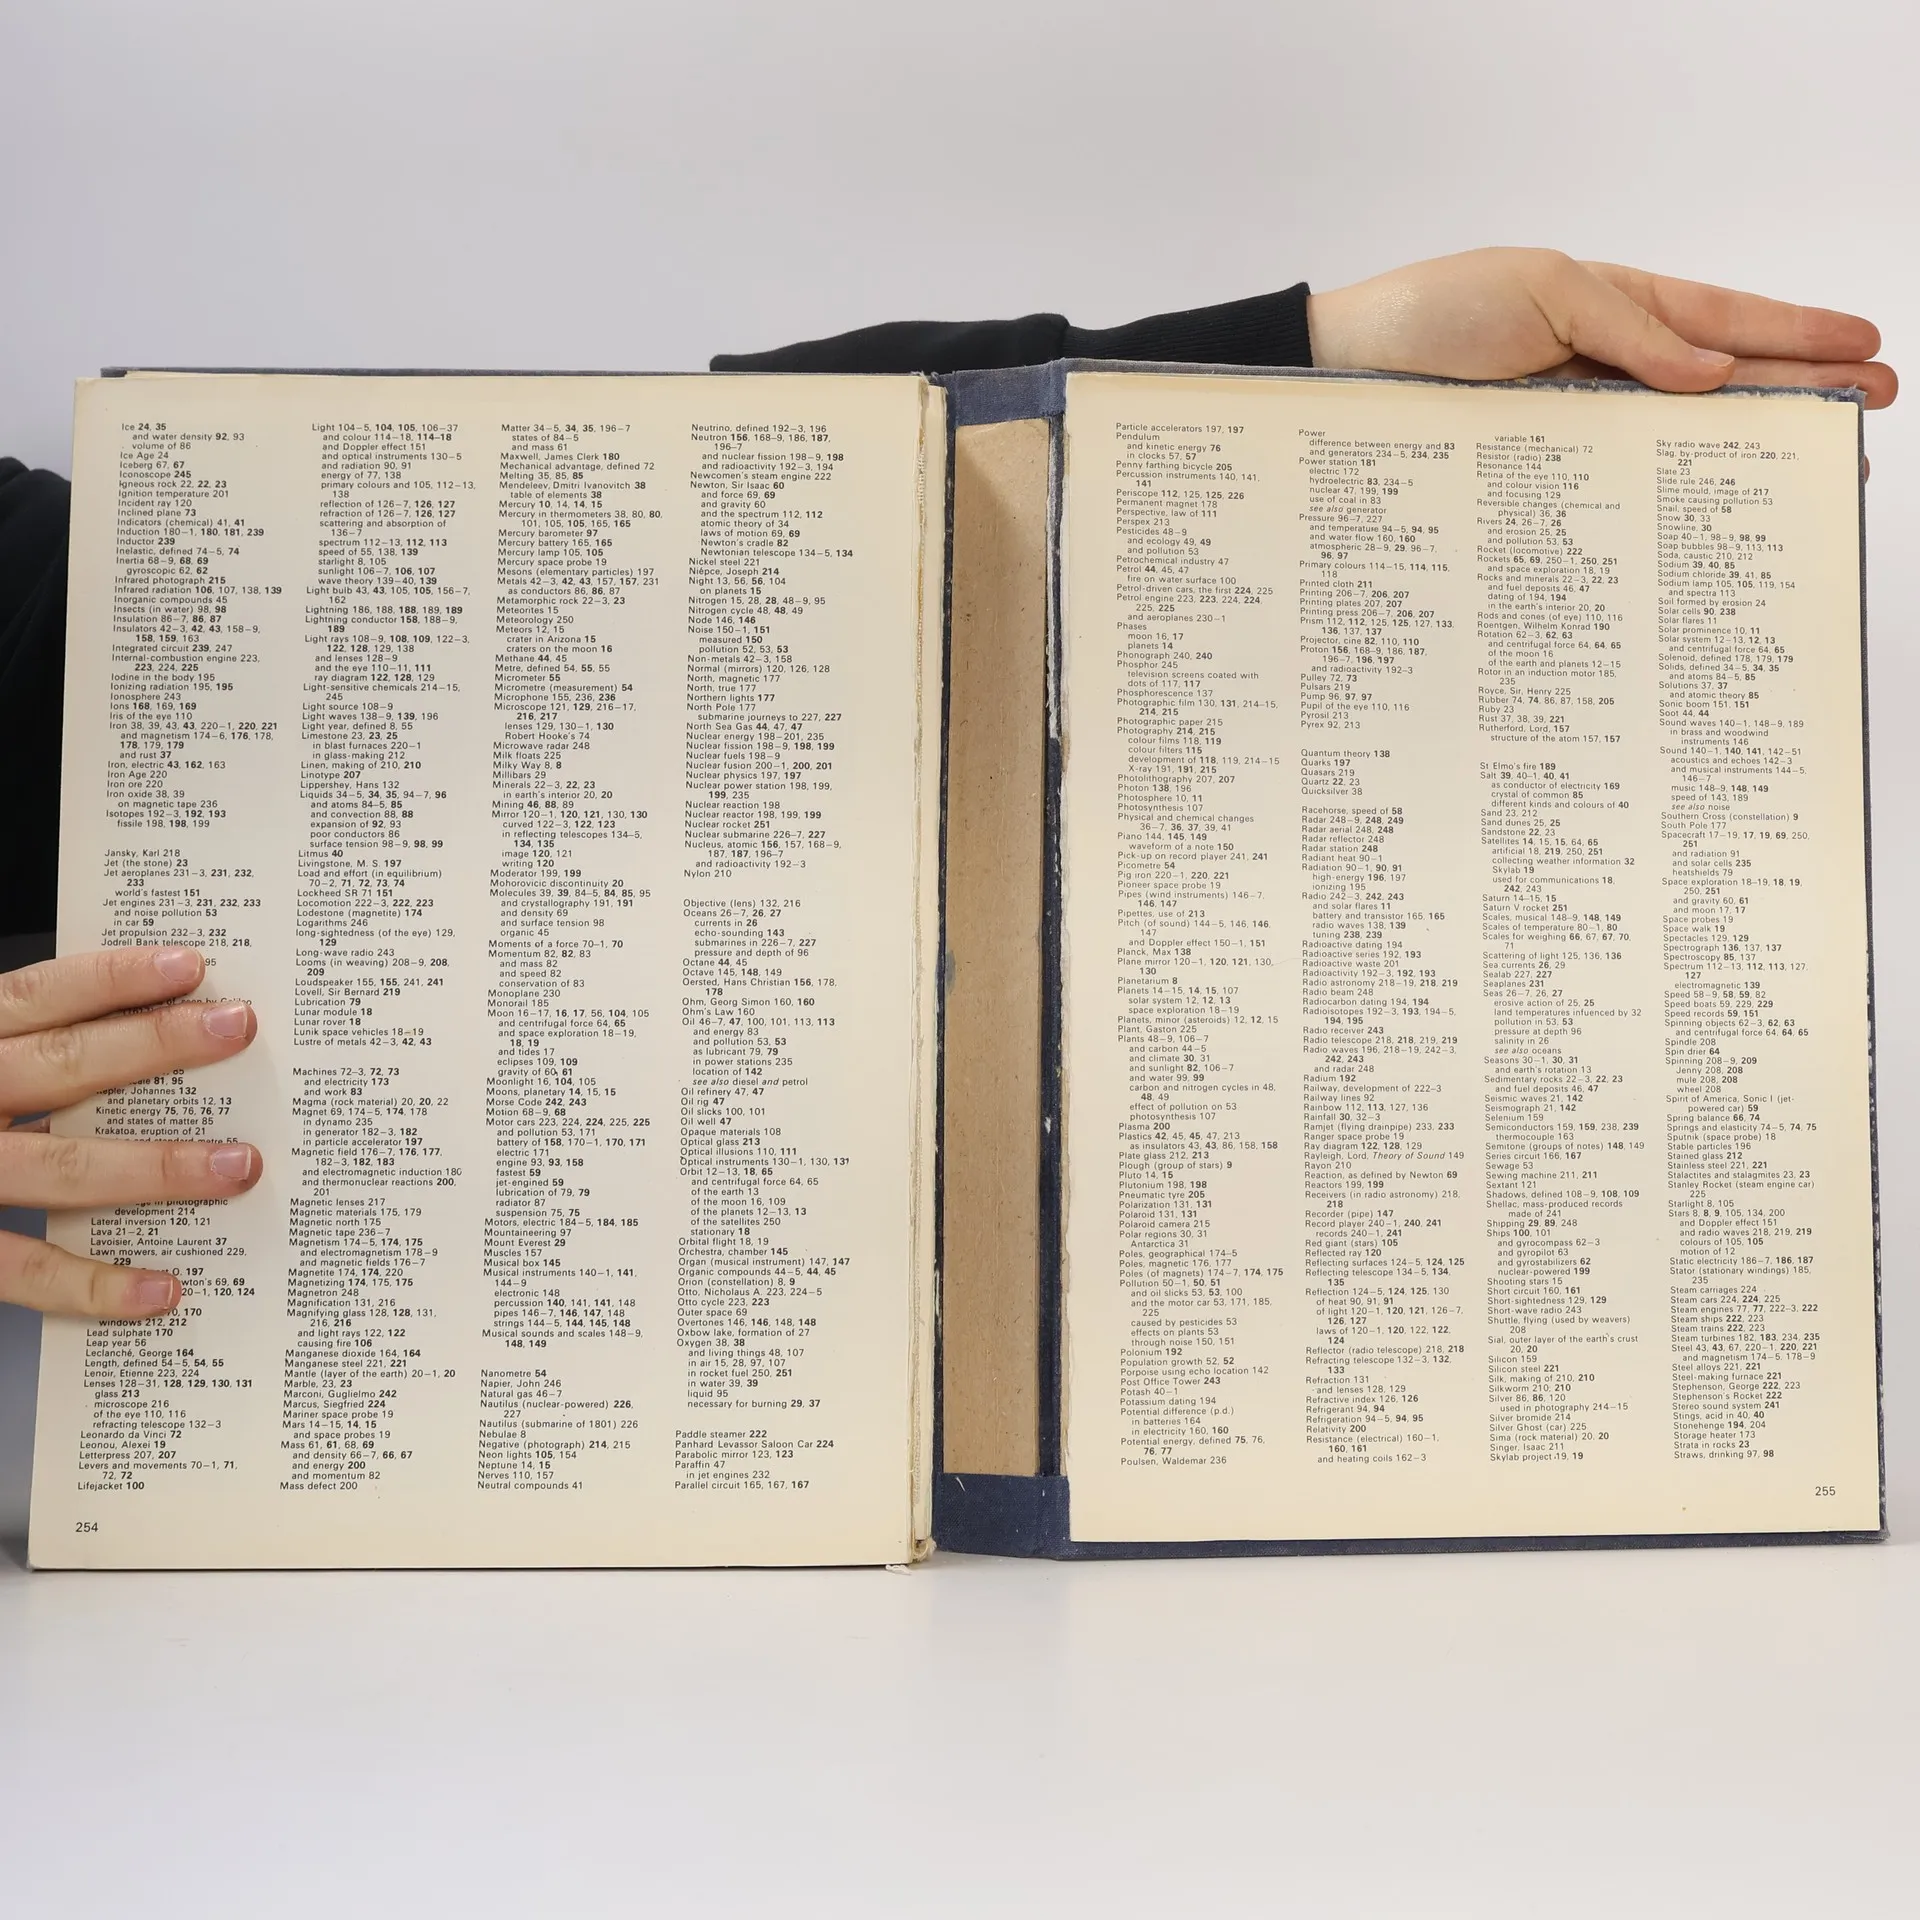 Ice 24, 35
and water density 92, 93
volume of 86
Ice Age 24
Iceberg 67, 67
Iconoscope 245
Igneous rock 22, 22, 23
Ignition temperature 201
Incident ray 120
Inclined plane 73
Indicators (chemical) 41, 41
Induction 180-1, 180, 181, 239
Inductor 239
Inelastic, defined 74-5, 74
Inertia 68-9, 68, 69
gyroscopic 62, 62
Infrared photograph 215
Infrared radiation 106, 107, 138, 139
Inorganic compounds 45
Insects (in water) 98, 98
Insulation 86-7, 86, 87
Insulators 42-3, 42, 43, 158-9,
158, 159, 163
Integrated circuit 239, 247
Internal-combustion engine 223,
223, 224, 225
Iodine in the body 195
Ionizing radiation 195, 195
Ionosphere 243
Ions 168, 169, 169
Iris of the eye 110
Iron 38, 39, 43, 43, 220-1, 220, 221
and magnetism 174-6, 176, 178,
178, 179, 179
and rust 37
Iron, electric 43, 162, 163
Iron Age 220
Iron ore 220
Iron oxide 38, 39
on magnetic tape 236
Isotopes 192-3, 192, 193
fissile 198, 198, 199
Jansky, Karl 218
Jet (the stone) 23
Jet aeroplanes 231-3, 231, 232,
233
world's fastest 151
Jet engines 231-3, 231, 232, 233
and noise pollution 53
in car 59
Jet propulsion 232-3, 232
Jodrell Bank telescope 218, 218,
Kepler, Johannes 132
and planetary orbits 12, 13
Kinetic energy 75, 76, 76, 77
and states of matter 85
Krakatoa, eruption of 21
development 214
Lateral inversion 120, 121
Lava 21-2, 21
Lavoisier, Antoine Laurent 37
Lawn mowers, air cushioned 229,
229
windows 212, 212
Lead sulphate 170
Leap year 56
Leclanché, George 164
Length, defined 54-5, 54, 55
Lenoir, Etienne 223, 224
Lenses 128-31, 128, 129, 130, 131
glass 213
microscope 216
of the eye 110, 116
refracting telescope 132-3
Leonardo da Vinci 72
Leonou, Alexei 19
Letterpress 207, 207
Levers and movements 70-1, 71,
72, 72
Lifejacket 100
Light 104-5, 104, 105, 106-37
and colour 114-18, 114-18
and Doppler effect 151
and optical instruments 130-5
and radiation 90, 91
energy of 77, 138
primary colours and 105, 112-13,
138
reflection of 126-7, 126, 127
refraction of 126-7, 126, 127
scattering and absorption of
136-7
spectrum 112-13, 112, 113
speed of 55, 138, 139
starlight 8, 105
sunlight 106-7, 106, 107
wave theory 139-40, 139
Light bulb 43, 43, 105, 105, 156-7,
162
Lightning 186, 188, 188, 189, 189
Lightning conductor 158, 188-9,
189
Light rays 108-9, 108, 109, 122-3,
122, 128, 129, 138
and lenses 128-9
and the eye 110-11, 111
ray diagram 122, 128, 129
Light-sensitive chemicals 214-15,
245
Light source 108-9
Light waves 138-9, 139, 196
Light year, defined 8, 55
Limestone 23, 23, 25
in blast furnaces 220-1
in glass-making 212
Linen, making of 210, 210
Linotype 207
Lippershey, Hans 132
Liquids 34-5, 34, 35, 94-7, 96
and atoms 84-5, 85
and convection 88, 88
expansion of 92, 93
poor conductors 86
surface tension 98-9, 98, 99
Litmus 40
Livingstone, M. S. 197
Load and effort (in equilibrium)
70-2, 71, 72, 73, 74
Lockheed SR 71 151
Locomotion 222-3, 222, 223
Lodestone (magnetite) 174
Logarithms 246
long-sightedness (of the eye) 129,
129
Long-wave radio 243
Looms (in weaving) 208-9, 208,
209
Loudspeaker 155, 155, 241, 241
Lovell, Sir Bernard 219
Lubrication 79
Lunar module 18
Lunar rover 18
Lunik space vehicles 18-19
Lustre of metals 42-3, 42, 43
Machines 72-3, 72, 73
and electricity 173
and work 83
Magma (rock material) 20, 20, 22
Magnet 69, 174-5, 174, 178
in dynamo 235
in generator 182-3, 182
in particle accelerator 197
Magnetic field 176-7, 176, 177,
182-3, 182, 183
and electromagnetic induction 180
and thermonuclear reactions 200,
201
Magnetic lenses 217
Magnetic materials 175, 179
Magnetic north 175
Magnetic tape 236-7
Magnetism 174-5, 174, 175
and electromagnetism 178-9
and magnetic fields 176-7
Magnetite 174, 174, 220
Magnetizing 174, 175, 175
Magnetron 248
Magnification 131, 216
Magnifying glass 128, 128, 131,
216, 216
and light rays 122, 122
causing fire 106
Manganese dioxide 164, 164
Manganese steel 221, 221
Mantle (layer of the earth) 20-1, 20
Marble, 23, 23
Marconi, Guglielmo 242
Marcus, Siegfried 224
Mariner space probe 19
Mars 14-15, 14, 15
and space probes 19
Mass 61, 61, 68, 69
and density 66-7, 66, 67
and energy 200
and momentum 82
Mass defect 200
Matter 34-5, 34, 35, 196-7
states of 84-5
and mass 61
Maxwell, James Clerk 180
Mechanical advantage, defined 72
Melting 35, 85, 85
Mendeleev, Dmitri Ivanovitch 38
table of elements 38
Mercury 10, 14, 14, 15
Mercury in thermometers 38, 80, 80,
101, 105, 105, 165, 165
Mercury barometer 97
Mercury battery 165, 165
Mercury lamp 105, 105
Mercury space probe 19
Mesons (elementary particles) 197
Metals 42-3, 42, 43, 157, 157, 231
as conductors 86, 86, 87
Metamorphic rock 22-3, 23
Meteorites 15
Meteorology 250
Meteors 12, 15
crater in Arizona 15
craters on the moon 16
Methane 44, 45
Metre, defined 54, 55, 55
Micrometer 55
Micrometre (measurement) 54
Microphone 155, 236, 236
Microscope 121, 129, 216-17,
216, 217
lenses 129, 130-1, 130
Robert Hooke's 74
Microwave radar 248
Milk floats 225
Milky Way 8, 8
Millibars 29
Minerals 22-3, 22, 23
in earth's interior 20, 20
Mining 46, 88, 89
Mirror 120-1, 120, 121, 130, 130
curved 122-3, 122, 123
in reflecting telescopes 134-5,
134, 135
image 120, 121
writing 120
Moderator 199, 199
Mohorovicic discontinuity 20
Molecules 39, 39, 84-5, 84, 85, 95
and crystallography 191, 191
and density 69
and surface tension 98
organic 45
Moments of a force 70-1, 70
Momentum 82, 82, 83
and mass 82
and speed 82
conservation of 83
Monoplane 230
Monorail 185
Moon 16-17, 16, 17, 56, 104, 105
and centrifugal force 64, 65
and space exploration 18-19,
18, 19
and tides 17
eclipses 109, 109
gravity of 60, 61
Moonlight 16, 104, 105
Moons, planetary 14, 15, 15
Morse Code 242, 243
Motion 68-9, 68
Motor cars 223, 224, 224, 225, 225
and pollution 53, 171
battery of 158, 170-1, 170, 171
electric 171
engine 93, 93, 158
fastest 59
jet-engined 59
lubrication of 79, 79
radiator 87
suspension 75, 75
Motors, electric 184-5, 184, 185
Mountaineering 97
Mount Everest 29
Muscles 157
Musical box 145
Musical instruments 140-1, 141,
144-9
electronic 148
percussion 140, 141, 141, 148
pipes 146-7, 146, 147, 148
strings 144-5, 144, 145, 148
Musical sounds and scales 148-9,
148, 149
Nanometre 54
Napier, John 246
Natural gas 46-7
Nautilus (nuclear-powered) 226,
227
Nautilus (submarine of 1801) 226
Nebulae 8
Negative (photograph) 214, 215
Neon lights 105, 154
Neptune 14, 15
Nerves 110, 157
Neutral compounds 41
Neutrino, defined 192-3, 196
Neutron 156, 168-9, 186, 187,
196-7
and nuclear fission 198-9, 198
and radioactivity 192-3, 194
Newcomen's steam engine 222
Newton, Sir Isaac 60
and force 69, 69
and gravity 60
and the spectrum 112, 112
atomic theory of 34
laws of motion 69, 69
Newton's cradle 82
Newtonian telescope 134-5, 134
Nickel steel 221
Niépce, Joseph 214
Night 13, 56, 56, 104
on planets 15
Nitrogen 15, 28, 28, 48-9, 95
Nitrogen cycle 48, 48, 49
Node 146, 146
Noise 150-1, 151
measured 150
pollution 52, 53, 53
Non-metals 42-3, 158
Normal (mirrors) 120, 126, 128
North, magnetic 177
North, true 177
Northern lights 177
North Pole 177
submarine journeys to 227, 227
North Sea Gas 44, 47, 47
Nuclear energy 198-201, 235
Nuclear fission 198-9, 198, 199
Nuclear fuels 198-9
Nuclear fusion 200-1, 200, 201
Nuclear physics 197, 197
Nuclear power station 198, 199,
199, 235
Nuclear reaction 198
Nuclear reactor 198, 199, 199
Nuclear rocket 251
Nuclear submarine 226-7, 227
Nucleus, atomic 156, 157, 168-9,
187, 187, 196-7
and radioactivity 192-3
Nylon 210
Objective (lens) 132, 216
Oceans 26-7, 26, 27
currents in 26
echo-sounding 143
submarines in 226-7, 227
pressure and depth of 96
Octane 44, 45
Octave 145, 148, 149
Oersted, Hans Christian 156, 178,
178
Ohm, Georg Simon 160, 160
Ohm's Law 160
Oil 46-7, 47, 100, 101, 113, 113
and energy 83
and pollution 53, 53
as lubricant 79, 79
in power stations 235
location of 142
see also diesel and petrol
Oil refinery 47, 47
Oil rig 47
Oil slicks 100, 101
Oil well 47
Opaque materials 108
Optical glass 213
Optical illusions 110, 111
Optical instruments 130-1, 130, 131
Orbit 12-13, 18, 65
and centrifugal force 64, 65
of the earth 13
of the moon 16, 109
of the planets 12-13, 13
of the satellites 250
stationary 18
Orbital flight 18, 19
Orchestra, chamber 145
Organ (musical instrument) 147, 147
Organic compounds 44-5, 44, 45
Orion (constellation) 8, 9
Otto, Nicholaus A. 223, 224-5
Otto cycle 223, 223
Outer space 69
Overtones 146, 146, 148, 148
Oxbow lake, formation of 27
Oxygen 38, 38
and living things 48, 107
in air 15, 28, 97, 107
in rocket fuel 250, 251
in water 39, 39
liquid 95
necessary for burning 29, 37
Paddle steamer 222
Panhard Levassor Saloon Car 224
Parabolic mirror 123, 123
Paraffin 47
in jet engines 232
Parallel circuit 165, 167, 167
254
Particle accelerators 197, 197
Pendulum
and kinetic energy 76
in clocks 57, 57
Penny farthing bicycle 205
Percussion instruments 140, 141,
141
Periscope 112, 125, 125, 226
Permanent magnet 178
Perspective, law of 111
Perspex 213
Pesticides 48-9
and ecology 49, 49
and pollution 53
Petrochemical industry 47
Petrol 44, 45, 47
fire on water surface 100
Petrol-driven cars, the first 224, 225
Petrol engine 223, 223, 224, 224,
225, 225
and aeroplanes 230-1
Phases
moon 16, 17
planets 14
Phonograph 240, 240
Phosphor 245
television screens coated with
dots of 117, 117
Phosphorescence 137
Photographic film 130, 131, 214-15,
214, 215
Photographic paper 215
Photography 214, 215
colour films 118, 119
colour filters 115
development of 118, 119, 214-15
X-ray 191, 191, 215
Photolithography 207, 207
Photon 138, 196
Photosphere 10, 11
Photosynthesis 107
Physical and chemical changes
36-7, 36, 37, 39, 41
Piano 144, 145, 149
waveform of a note 150
Pick-up on record player 241, 241
Picometre 54
Pig iron 220-1, 220, 221
Pioneer space probe 19
Pipes (wind instruments) 146-7,
146, 147
Pipettes, use of 213
Pitch (of sound) 144-5, 146, 146,
147
and Doppler effect 150-1, 151
Planck, Max 138
Plane mirror 120-1, 120, 121, 130,
130
Planetarium 8
Planets 14-15, 14, 15, 107
solar system 12, 12, 13
space exploration 18-19
Planets, minor (asteroids) 12, 12, 15
Plant, Gaston 225
Plants 48-9, 106-7
and carbon 44-5
and climate 30, 31
and sunlight 82, 106-7
and water 99, 99
carbon and nitrogen cycles in 48,
48, 49
effect of pollution on 53
photosynthesis 107
Plasma 200
Plastics 42, 45, 45, 47, 213
as insulators 43, 43, 86, 158, 158
Plate glass 212, 213
Plough (group of stars) 9
Pluto 14, 15
Plutonium 198, 198
Pneumatic tyre 205
Polarization 131, 131
Polaroid 131, 131
Polaroid camera 215
Polar regions 30, 31
Antarctica 31
Poles, geographical 174-5
Poles, magnetic 176, 177
Poles (of magnets) 174-7, 174, 175
Pollution 50-1, 50, 51
and oil slicks 53, 53, 100
and the motor car 53, 171, 185,
225
caused by pesticides 53
effects on plants 53
through noise 150, 151
Polonium 192
Population growth 52, 52
Porpoise using echo location 142
Post Office Tower 243
Potash 40-1
Potassium dating 194
Potential difference (p.d.)
in batteries 164
in electricity 160, 160
Potential energy, defined 75, 76,
76, 77
Poulsen, Waldemar 236
Power
difference between energy and 83
and generators 234-5, 234, 235
Power station 181
electric 172
hydroelectric 83, 234-5
nuclear 47, 199, 199
use of coal in 83
see also generator
Pressure 96-7, 227
and temperature 94-5, 94, 95
and water flow 160, 160
atmospheric 28-9, 29, 96-7,
96, 97
Primary colours 114-15, 114, 115,
118
Printed cloth 211
Printing 206-7, 206, 207
Printing plates 207, 207
Printing press 206-7, 206, 207
Prism 112, 112, 125, 125, 127, 133,
136, 137, 137
Projector, cine 82, 110, 110
Proton 156, 168-9, 186, 187,
196-7, 196, 197
and radioactivity 192-3
Pulley 72, 73
Pulsars 219
Pump 96, 97, 97
Pupil of the eye 110, 116
Pyrosil 213
Pyrex 92, 213
Quantum theory 138
Quarks 197
Quasars 219
Quartz 22, 23
Quicksilver 38
Racehorse, speed of 58
Radar 248-9, 248, 249
Radar aerial 248, 248
Radar reflector 248
Radar station 248
Radiant heat 90-1
Radiation 90-1, 90, 91
high-energy 196, 197
ionizing 195
Radio 242-3, 242, 243
and solar flares 11
battery and transistor 165, 165
radio waves 138, 139
tuning 238, 239
Radioactive dating 194
Radioactive series 192, 193
Radioactive waste 201
Radioactivity 192-3, 192, 193
Radio astronomy 218-19, 218, 219
Radio beam 248
Radiocarbon dating 194, 194
Radioisotopes 192-3, 193, 194-5,
194, 195
Radio receiver 243
Radio telescope 218, 218, 219, 219
Radio waves 196, 218-19, 242-3,
242, 243
and radar 248
Radium 192
Railway, development of 222-3
Railway lines 92
Rainbow 112, 113, 127, 136
Rainfall 30, 32-3
Ramjet (flying drainpipe) 233, 233
Ranger space probe 19
Ray diagram 122, 128, 129
Rayleigh, Lord, Theory of Sound 149
Rayon 210
Reaction, as defined by Newton 69
Reactors 199, 199
Receivers (in radio astronomy) 218,
218
Recorder (pipe) 147
Record player 240-1, 240, 241
records 240-1, 241
Red giant (stars) 105
Reflected ray 120
Reflecting surfaces 124-5, 124, 125
Reflecting telescope 134-5, 134,
135
Reflection 124-5, 124, 125, 130
of heat 90, 91, 91
of light 120-1, 120, 121, 126-7,
126, 127
laws of 120-1, 120, 122, 122,
124
Reflector (radio telescope) 218, 218
Refracting telescope 132-3, 132,
133
Refraction 131
and lenses 128, 129
Refractive index 126, 126
Refrigerant 94, 94
Refrigeration 94-5, 94, 95
Relativity 200
Resistance (electrical) 160-1,
160, 161
and heating coils 162-3
variable 161
Resistance (mechanical) 72
Resistor (radio) 238
Resonance 144
Retina of the eye 110, 110
and colour vision 116
and focusing 129
Reversible changes (chemical and
physical) 36, 36
Rivers 24, 26-7, 26
and erosion 25, 25
and pollution 53, 53
Rocket (locomotive) 222
Rockets 65, 69, 250-1, 250, 251
and space exploration 18, 19
Rocks and minerals 22-3, 22, 23
and fuel deposits 46, 47
dating of 194, 194
in the earth's interior 20, 20
Rods and cones (of eye) 110, 116
Roentgen, Wilhelm Konrad 190
Rotation 62-3, 62, 63
and centrifugal force 64, 64, 65
of the moon 16
of the earth and planets 12-15
Rotor in an induction motor 185,
235
Royce, Sir, Henry 225
Rubber 74, 74, 86, 87, 158, 205
Ruby 23
Rust 37, 38, 39, 221
Rutherford, Lord, 157
structure of the atom 157, 157
St Elmo's fire 189
Salt 39, 40-1, 40, 41
as conductor of electricity 169
crystal of common 85
different kinds and colours of 40
Sand 23, 212
Sand dunes 25, 25
Sandstone 22, 23
Satellites 14, 15, 15, 64, 65
artificial 18, 219, 250, 251
collecting weather information 32
Skylab 19
used for communications 18,
242, 243
Saturn 14-15, 15
Saturn V rocket 251
Scales, musical 148-9, 148, 149
Scales of temperature 80-1, 80
Scales for weighing 66, 67, 67, 70,
71
Scattering of light 125, 136, 136
Sea currents 26, 29
Sealab 227, 227
Seaplanes 231
Seas 26-7, 26, 27
erosive action of 25, 25
land temperatures infuenced by 32
pollution in 53, 53
pressure at depth 96
salinity in 26
see also oceans
Seasons 30-1, 30, 31
and earth's rotation 13
Sedimentary rocks 22-3, 22, 23
and fuel deposits 46, 47
Seismic waves 21, 142
Seismograph 21, 142
Semiconductors 159, 159, 238, 239
thermocouple 163
Semitone (group of notes) 148, 149
Series circuit 166, 167
Selenium 159
Sewage 53
Sewing machines 211, 211
Sextant 121
Shadows, defined 108-9, 108, 109
Shellac, mass-produced records
made of 241
Shipping 29, 89, 248
Ships 100, 101
and gyrocompass 62-3
and gyropilot 63
and gyrostabilizers 62
nuclear-powered 199
Shooting stars 15
Short circuit 160, 161
Short-sightedness 129, 129
Short-wave radio 243
Shuttle, flying (used by weavers)
208
Sial, outer layer of the earth's crust
20, 20
Silicon 159
Silicon steel 221
Silk, making of 210, 210
Silkworm 210, 210
Silver 86, 86, 120
used in photography 214-15
Silver bromide 214
Silver Ghost (car) 225
Sima (rock material) 20, 20
Singer, Isaac 211
Skylab project 19, 19
Sky radio wave 242, 243
Slag, by-product of iron 220, 221,
221
Slate 23
Slide rule 246, 246
Slime mould, image of 217
Smoke causing pollution 53
Snail, speed of 58
Snow 30, 33
Snowline, 30
Soap 40-1, 98-9, 98, 99
Soap bubbles 98-9, 113, 113
Soda, caustic 210, 212
Sodium 39, 40, 85
Sodium chloride 39, 41, 85
Sodium lamp 105, 105, 119, 154
and spectra 113
Soil formed by erosion 24
Solar cells 90, 238
Solar flares 11
Solar prominence 10, 11
Solar system 12-13, 12, 13
and centrifugal force 64, 65
Solenoid, defined 178, 179, 179
Solids, defined 34-5, 34, 35
and atoms 84-5, 85
Solutions 37, 37
and atomic theory 85
Sonic boom 151, 151
Soot 44, 44
Sound waves 140-1, 148-9, 189
in brass and woodwind
instruments 146
Sound 140-1, 140, 141, 142-51
acoustics and echoes 142-3
and musical instruments 144-5,
146-7
music 148-9, 148, 149
speed of 143, 189
see also noise
Southern Cross (constellation) 9
South Pole 177
Spacecraft 17-19, 17, 19, 69, 250,
251
and radiation 91
and solar cells 235
heatshields 79
Space exploration 18-19, 18, 19,
250, 251
and gravity 60, 61
and moon 17, 17
Space probes 19
Space walk 19
Spectacles 129, 129
Spectrograph 136, 137, 137
Spectroscopy 85, 137
Spectrum 112-13, 112, 113, 127,
127
electromagnetic 139
Speed 58-9, 58, 59, 82
Speed boats 59, 229, 229
Speed records 59, 151
Spinning objects 62-3, 62, 63
and centrifugal force 64, 64, 65
Spindle 208
Spin drier 64
Spinning 208-9, 209
Jenny 208, 208
mule 208, 208
wheel 208
Spirit of America, Sonic I (jet-
powered car) 59
Spring balance 66, 74
Springs and elasticity 74-5, 74, 75
Sputnik (space probe) 18
Stable particles 196
Stained glass 212
Stainless steel 221, 221
Stalactites and stalagmites 23, 23
Stanley Rocket (steam engine car)
225
Starlight 8, 105
Stars 8, 8, 9, 105, 134, 200
and Doppler effect 151
and radio waves 218, 219, 219
colours of 105, 105
motion of 12
Static electricity 186-7, 186, 187
Stator (stationary windings) 185,
235
Steam carriages 224
Steam cars 224, 224, 225
Steam engines 77, 77, 222-3, 222
Steam ships 222, 223
Steam trains 222, 223
Steam turbines 182, 183, 234, 235
Steel 43, 43, 67, 220-1, 220, 221
and magnetism 174-5, 178-9
Steel alloys 221, 221
Steel-making furnace 221
Stephenson, George 222, 223
Stephenson's Rocket 222
Stereo sound system 241
Stings, acid in 40, 40
Stonehenge 194, 204
Storage heater 173
Strata in rocks 23
Straws, drinking 97, 98
255